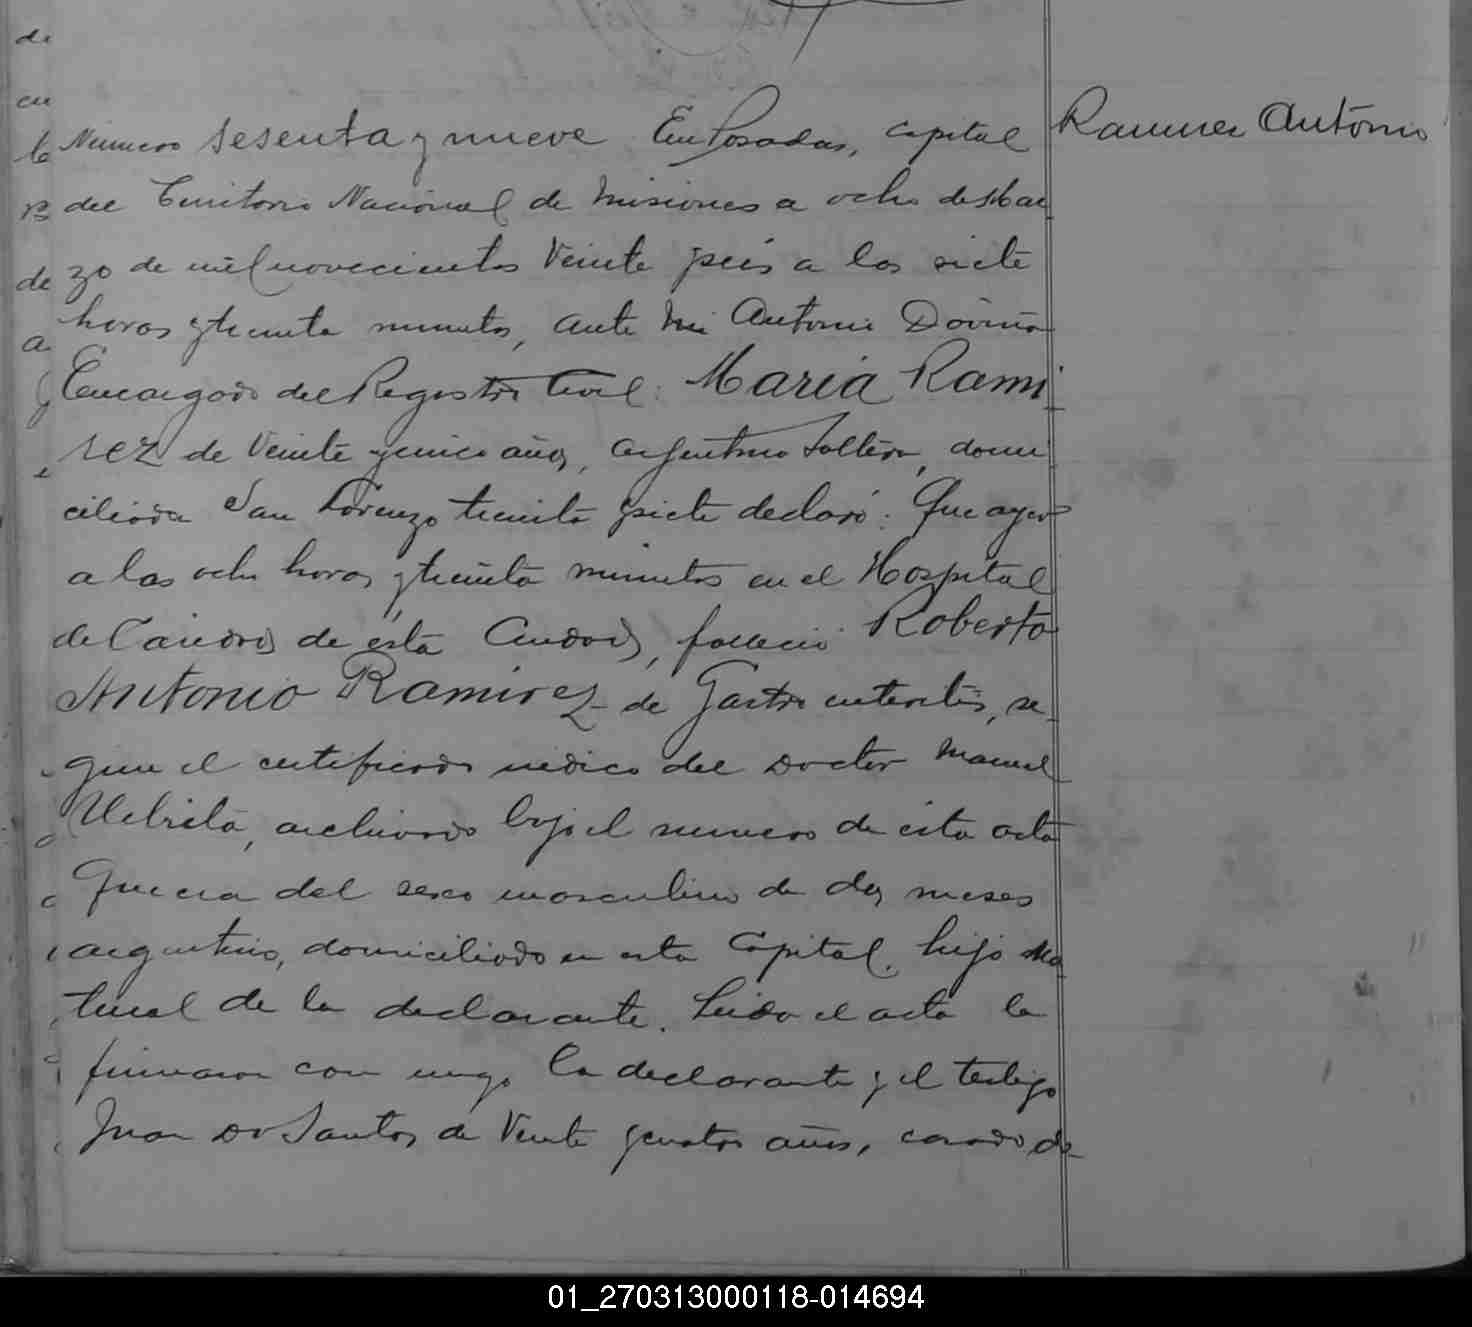 Numero sesenta y nueve En Posadas, capital
Ramirez Antonio
del Territorio Nacional de Misiones a ocho de Mar
zo de mil novecientos veinte y seis a las siete
horas y treinta minutos, ante mi Antonio
Encargado del Registro Civil: Maria Rami
rez de veinte y cinco años, argentina soltera, domi
ciliada San Lorenzo treinta y siete declaró: Que ayer
a las ocho horas y treinta minutos en el Hospital
de Caridad de esta Ciudad, falleció Roberto
Antonio Ramirez de Gastro enteritis, se
gun el certificado médico del Doctor Manuel
archivado bajo el numero de esta acta
Que era del sexo masculino de dos meses
argentino, domiciliado en esta Capital, hijo na
tural de la declarante. Leida el acta la
firmaron con migo la declarante y el testigo
Juan Do Santos de veinte y cuatro años, casado de
01_270313000118-014694